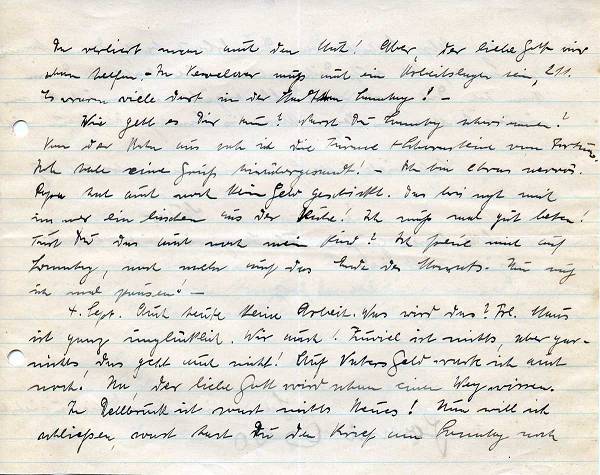 Da verliert man auch den Mut! Aber der liebe Gott wird
schon helfen. - In Kevelaer muß auch ein Arbeitslager sein, 211.
Es waren viele dort in der Stadt am Sonntag! -
Wie geht es Dir nun? Warst Du Sonntag schwimmen?
Von der Bahn aus sah ich die Türme + Schornsteine von
Ich habe eine Gruß hinübergesandt! - Ich bin etwas nervös.
Papa hat auch noch kein Geld geschickt. Das bringt mich
immer ein bischen aus der Ruhe! Ich muß mal gut beten!
Tust Du das auch noch mein Kind? Ich freue mich auf
Sonntag, noch mehr auf das Ende des Monats. Nun muß
ich mal pausen! -
4. Sept. Auch heute keine Arbeit. Was wird das? Frl. Maus
ist ganz unglücklich. Wir auch! Zuviel ist nichts, aber gar-
nichts, das geht auch nicht! Auf Vaters Geld warte ich auch
noch! Na, der liebe Gott wird schon einen Weg wissen.
In Dellbrück ist sonst nichts Neues! Nun will ich
schließen, sonst hast Du den Brief am Sonntag noch